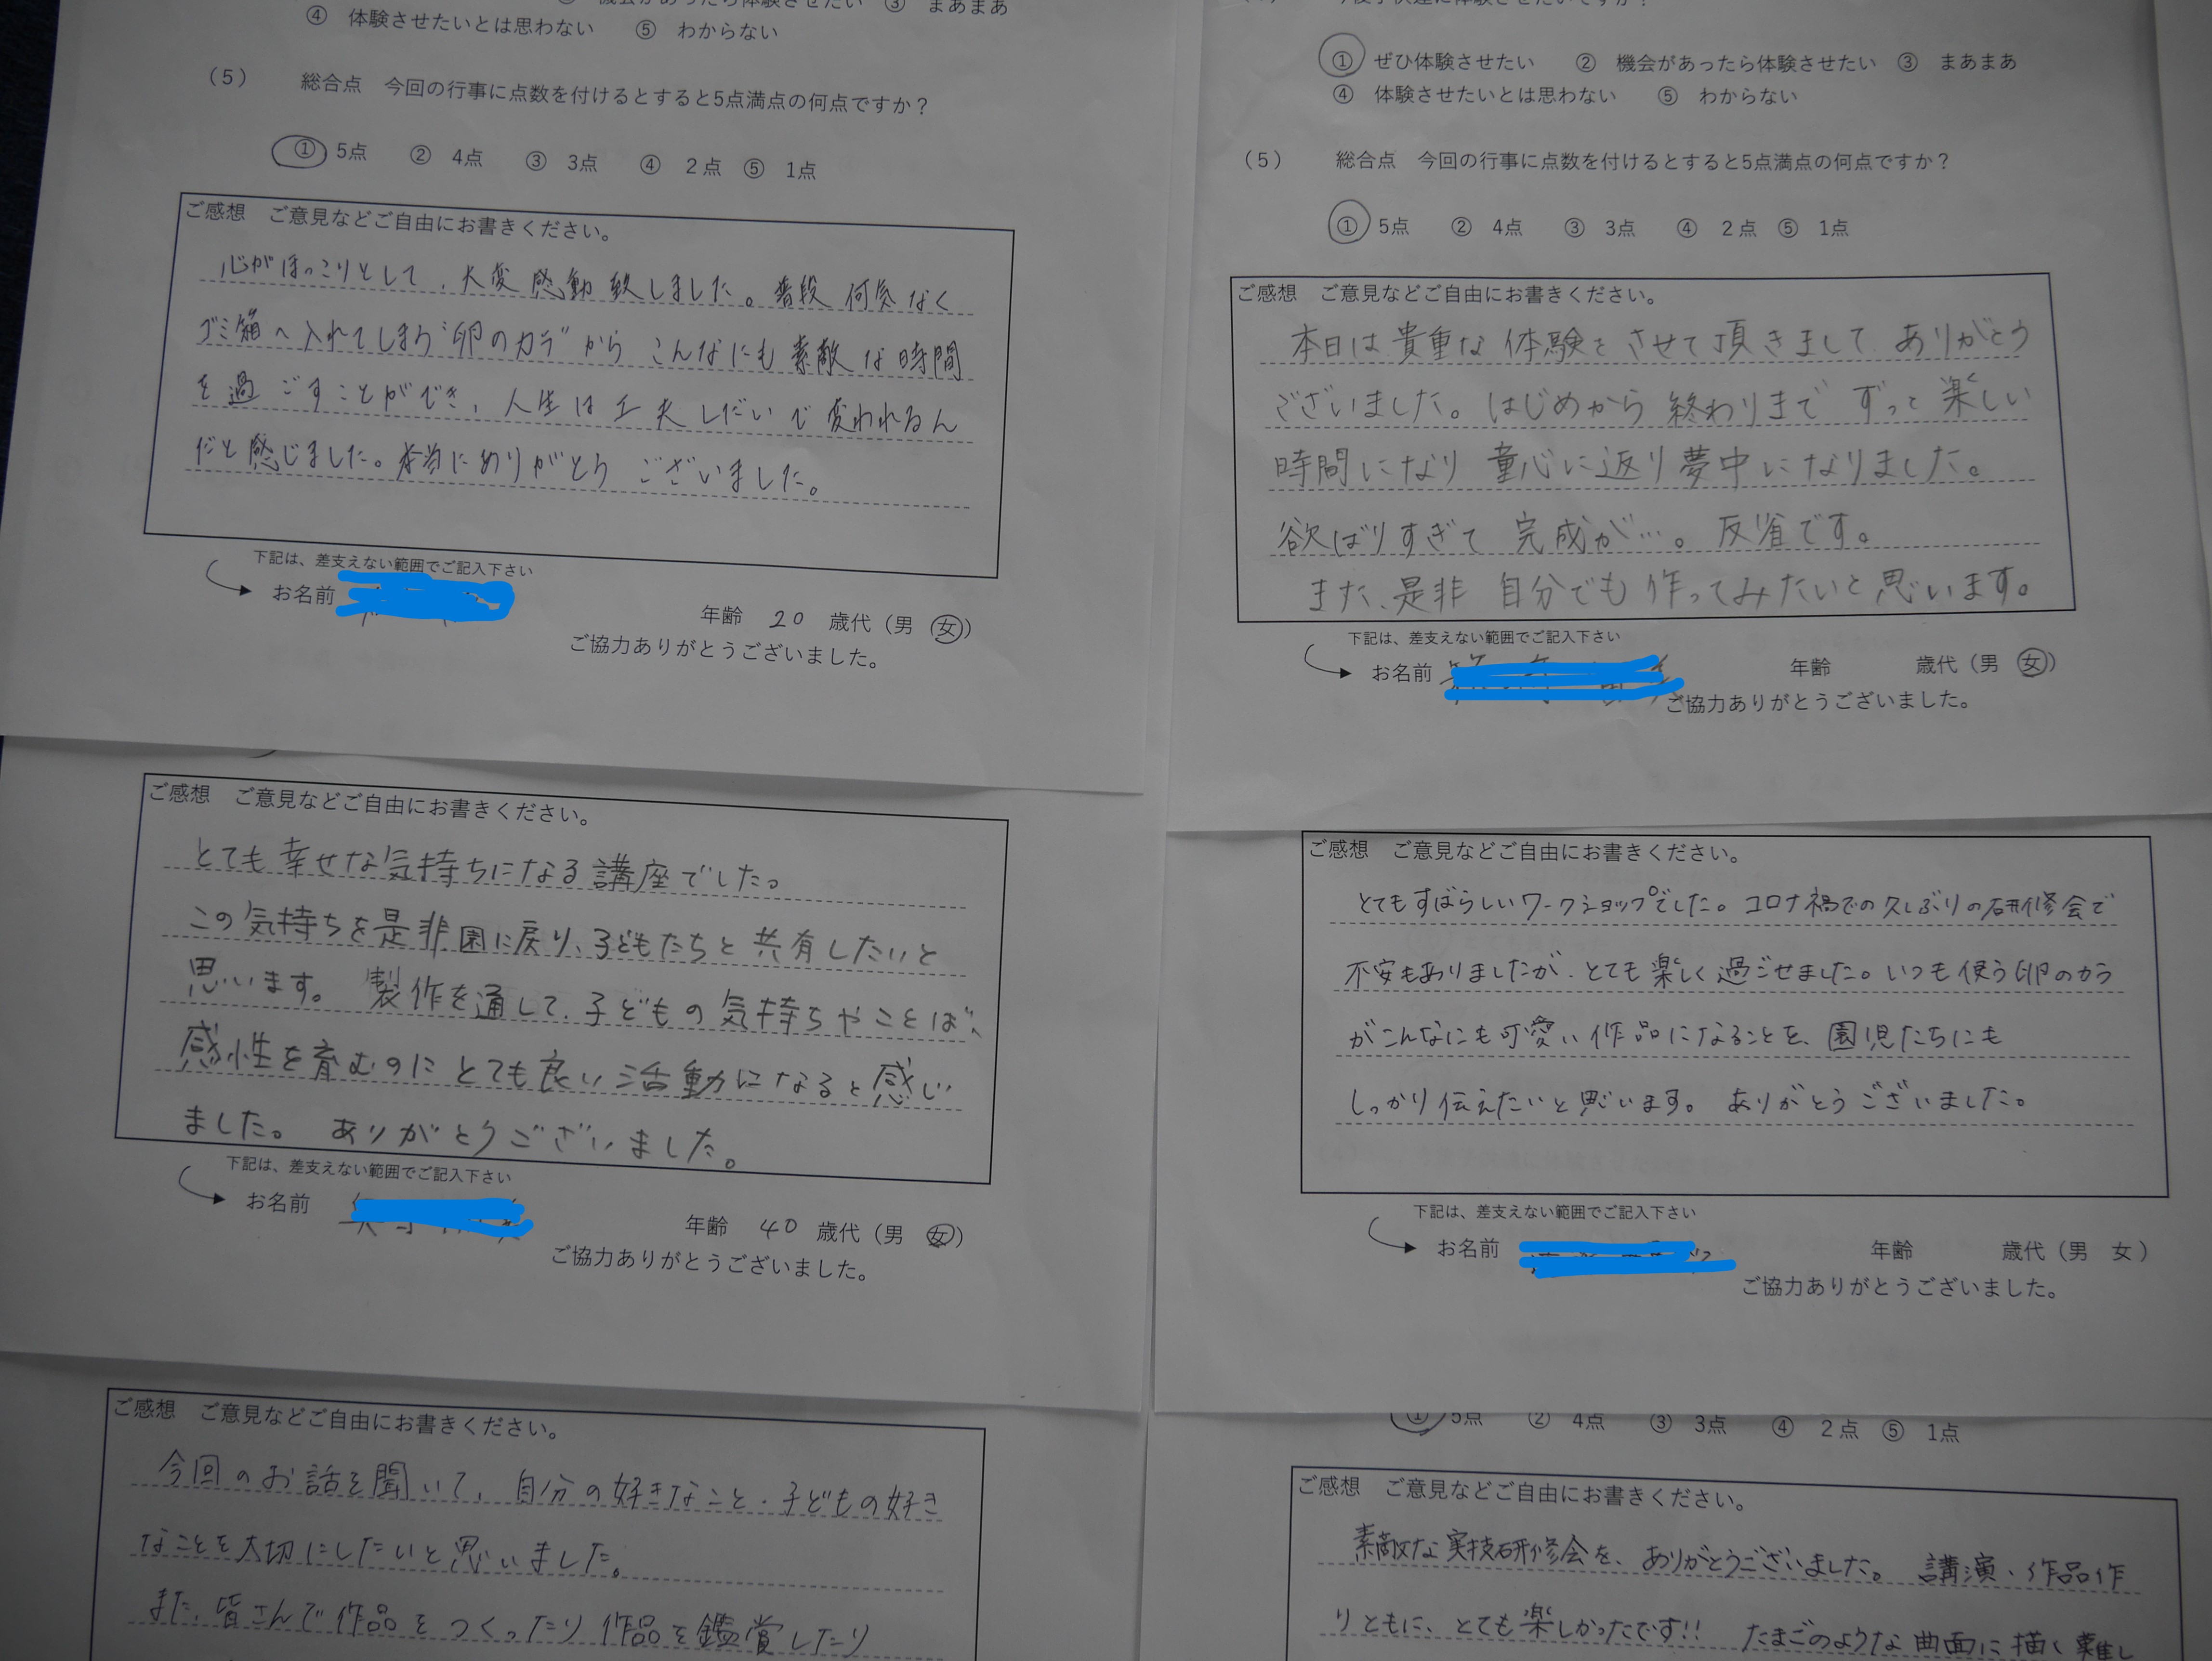 ④ 体験させたいとは思わない ⑤ わからない
(5) 総合点 今回の行事に点数を付けるとすると5点満点の何点ですか？
① 5点 ② 4点 ③ 3点 ④ 2点 ⑤ 1点
ご感想 ご意見などご自由にお書きください。
心がほっこりとして、大変感動致しました。普段何気なく
ゴミ箱へ入れてしまう"卵のカラ"から こんなにも素敵な時間
を過ごすことができ、人生は工夫しだいで変われるん
だと感じました。本当にありがとうございました。
下記は、差支えない範囲でご記入下さい
お名前 年齢 20 歳代（男 女）
ご協力ありがとうございました。
① ぜひ体験させたい ② 機会があったら体験させたい ③ まあまあ
④ 体験させたいとは思わない ⑤ わからない
(5) 総合点 今回の行事に点数を付けるとすると5点満点の何点ですか？
① 5点 ② 4点 ③ 3点 ④ 2点 ⑤ 1点
ご感想 ご意見などご自由にお書きください。
本日は貴重な体験をさせて頂きまして ありがとう
ございました。はじめから終わりまで ずっと楽しい
時間になり 童心に返り夢中になりました。
欲ばりすぎて 完成が…。反省です。
また、是非 自分でも作ってみたいと思います。
下記は、差支えない範囲でご記入下さい
お名前 年齢 歳代（男 女）
ご協力ありがとうございました。
ご感想 ご意見などご自由にお書きください。
とても幸せな気持ちになる講座でした。
この気持ちを是非園に戻り、子どもたちと共有したいと
思います。 製作を通して、子どもの気持ちやことば、
感性を育むのに とても良い活動になると感じ
ました。 ありがとうございました。
下記は、差支えない範囲でご記入下さい
お名前 年齢 40 歳代（男 女）
ご協力ありがとうございました。
ご感想 ご意見などご自由にお書きください。
とてもすばらしいワークショップでした。コロナ禍での久しぶりの研修会で
不安もありましたが、とても楽しく過ごせました。いつも使う卵のカラ
がこんなにも可愛い作品になることを、園児たちにも
しっかり伝えたいと思います。 ありがとうございました。
下記は、差支えない範囲でご記入下さい
お名前 年齢 歳代（男 女）
ご協力ありがとうございました。
ご感想 ご意見などご自由にお書きください。
今回のお話を聞いて、自分の好きなこと・子どもの好き
なことを大切にしたいと思いました。
また、皆さんで作品をつくったり作品を鑑賞したり
① 5点 ② 4点 ③ 3点 ④ 2点 ⑤ 1点
ご感想 ご意見などご自由にお書きください。
素敵な実技研修会を、ありがとうございました。 講演、作品作
りともに、とても楽しかったです!! たまごのような曲面に描く難し